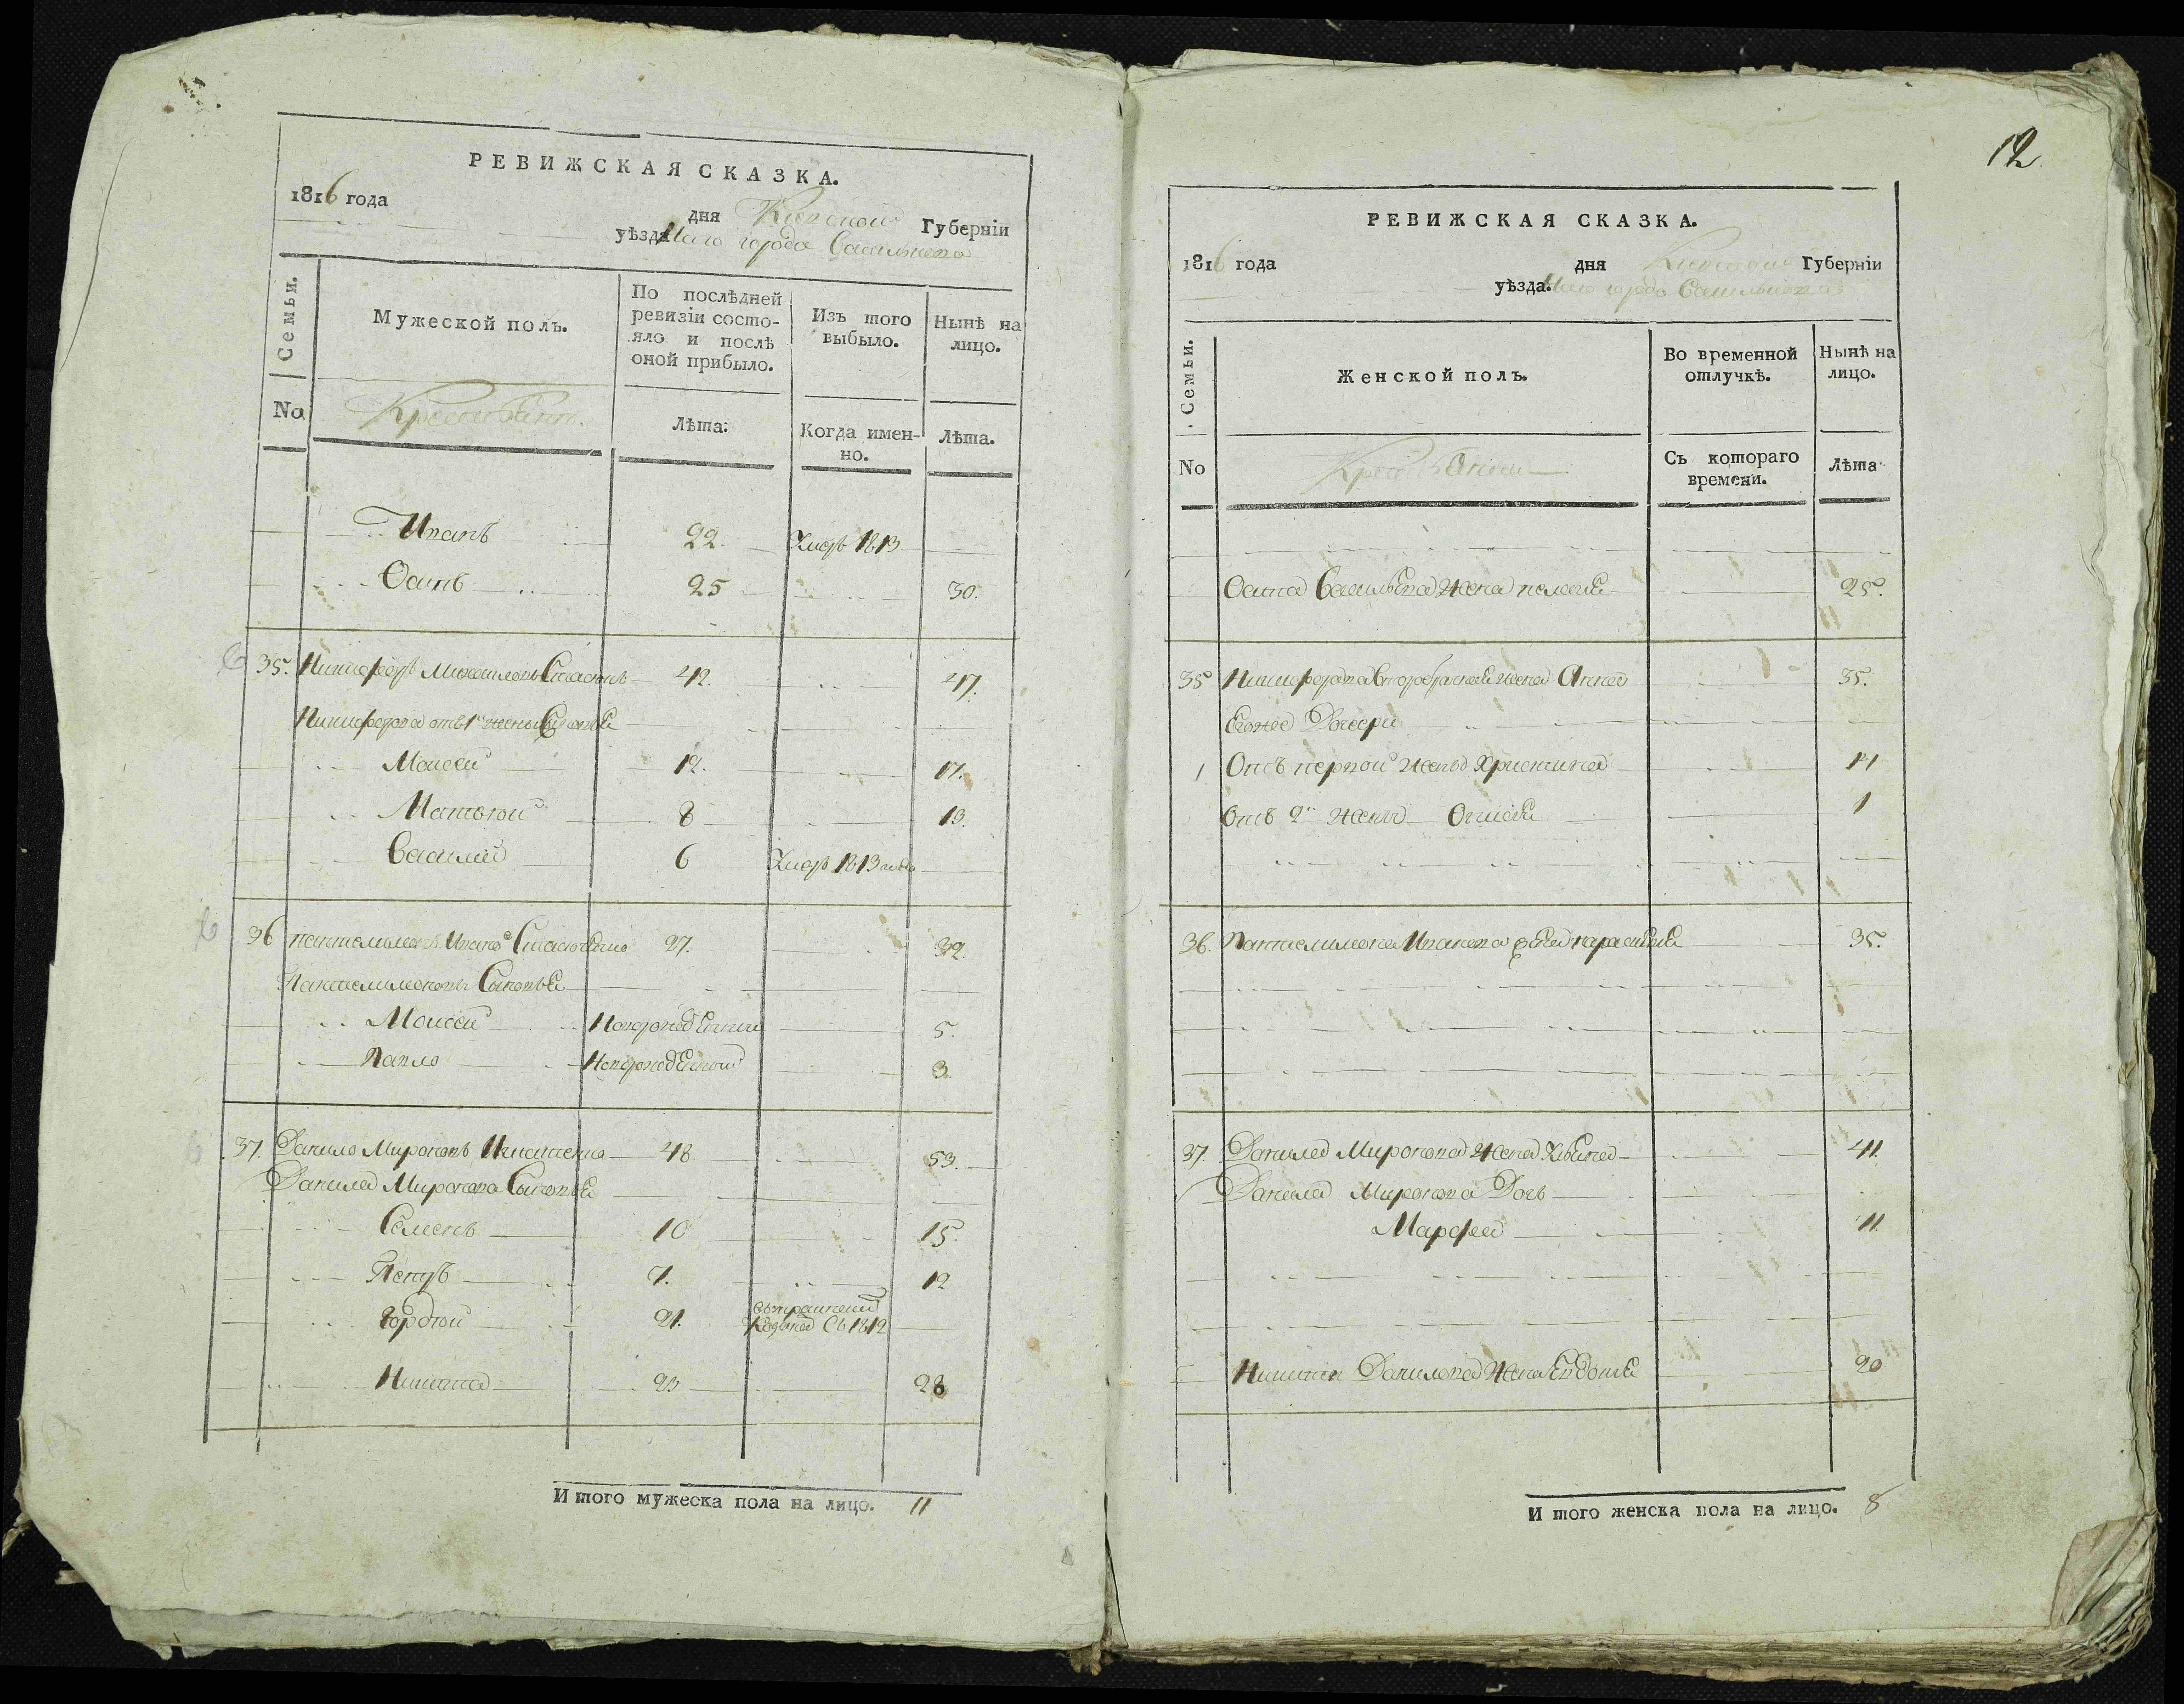 РЕВИЖСКАЯ СКАЗКА.
1816 года дня Киевской Губерніи
уѣзда города Василькова
Семьи.
No
Мужеской полъ.
Крестьянъ.
По послѣдней ревизіи состояло и послѣ оной прибыло.
Лѣта:
Изъ того выбыло.
Когда именно.
Нынѣ на лицо.
Лѣта.
Иванъ 22. Умеръ 1813
Осипъ 25 30.
35. Никифоръ Михайловъ 42. 47.
Никифора отъ 1й жены Сыновья
Моисей 12. 17.
Матвей 8 13.
Василий 6 Умеръ 1813
36 Пантелимонъ Ивановъ 27. 32.
Пантелимоновы Сыновья
Моисей Новорожденный 5.
Павло Новорожденной 3.
37. Данило Мироновъ Игнатенко 48 53.
Данила Миронова Сыновья
Семенъ 10 15.
Петръ 7. 12
Гордей 21. 1812
Никита 23 28
И того мужеска пола на лицо. 11
12.
РЕВИЖСКАЯ СКАЗКА.
1816 года дня Киевской Губерніи
уѣзда. города Василькова
Семьи.
No
Женской полъ.
Крестьянки
Во временной отлучкѣ.
Съ котораго времени.
Нынѣ на лицо.
Лѣта
Осипа Васильева жена Пелагия 25.
35 Никифора второбрачная жена Анна 35.
Егоже Дочери
1 Отъ первой жены Христина 14
Отъ 2й жены 1
36. Пантелимона Иванова жена Параскева 35.
37. Данила Миронова жена 41.
Данила Миронова Дочь
Марфа 11.
Никиты Данилова жена Евдокия 20
И того женска пола на лицо. 8